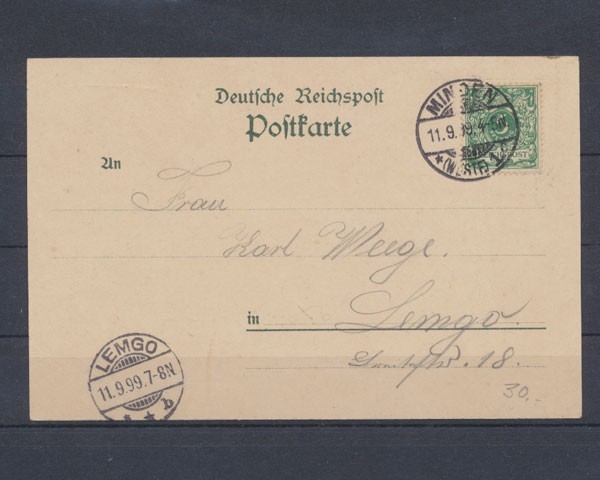 Deutsche Reichspost
Postkarte
MINDEN
11.9.99.
*(WESTF.)
An
Frau
Karl Weege.
in Lemgo.
18.
LEMGO
11.9.99.7-8N
* * b
30.-